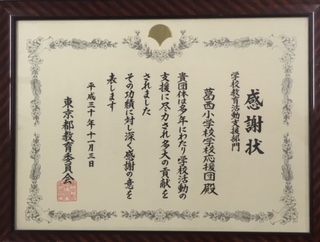 感謝状
学校教育活動支援部門
葛西小学校学校応援団殿
貴団体は多年にわたり学校活動の
支援に尽力され多大の貢献を
されました
その功績に対し深く感謝の意を
表します
平成三十年十一月三日
東京都教育委員会